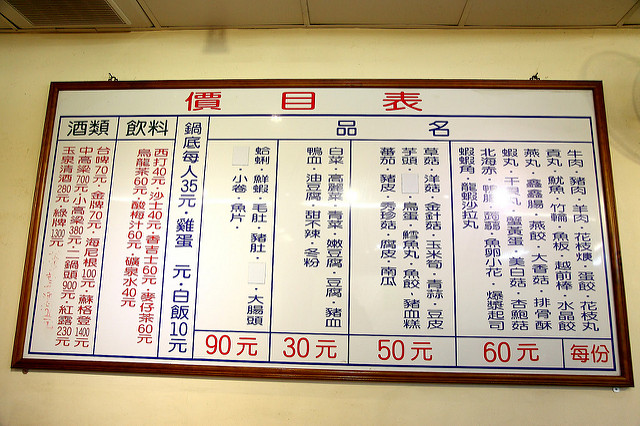 價目表
品名
每份
牛肉·豬肉·羊肉·花枝燠·蛋餃·花枝丸
貢丸·魷魚·竹輪·魚板·越前棒·水晶餃
燕丸·鑫鑫腸·燕餃·大香菇·排骨酥
蝦丸·干貝丸·蟹黃蛋·美白菇·杏鮑菇
北海赤·鴨腸·蒟蒻·魚卵小花·爆漿起司
蝦蝦角·龍蝦沙拉丸
60元
草菇·洋菇·金針菇·玉米筍·青蒜·豆皮
芋頭·鳥蛋·鱈魚丸·魚餃·豬血糕
蕃茄·豬皮·秀珍菇·腐皮·南瓜
50元
白菜·高麗菜·青菜·嫩豆腐·豆腐·豬血
鴨血·油豆腐·甜不辣·冬粉
30元
蛤蜊·鮮蝦·毛肚·豬肚·大腸頭
·小卷·魚片
90元
鍋底每人35元·雞蛋 元·白飯10元
飲料
西打40元·沙士40元·香吉士60元·麥仔茶60元
烏龍茶60元·酸梅汁60元·礦泉水40元
酒類
台啤70元·金牌70元·海尼根100元·蘇格登1400元
中高粱700元·小高粱380元·二鍋頭900元·紅露230元
玉泉清酒280元·綠牌1300元